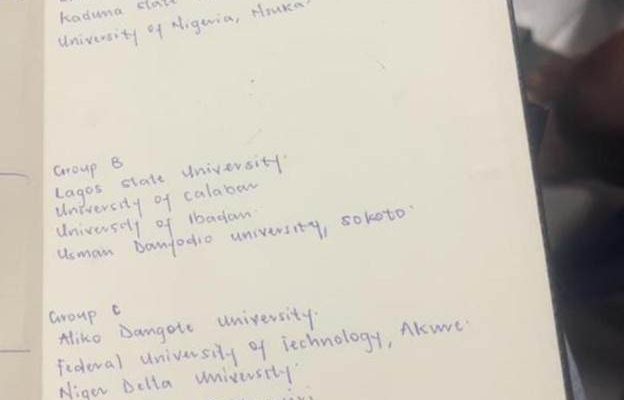 Kaduna state
University of Nigeria, Nsuka.
Group B
Lagos state University.
University of Calabar
University of Ibadan.
Usman Danfodio university, Sokoto.
Group C
Aliko Dangote University.
Federal University of Technology, Akure.
Niger Delta University.